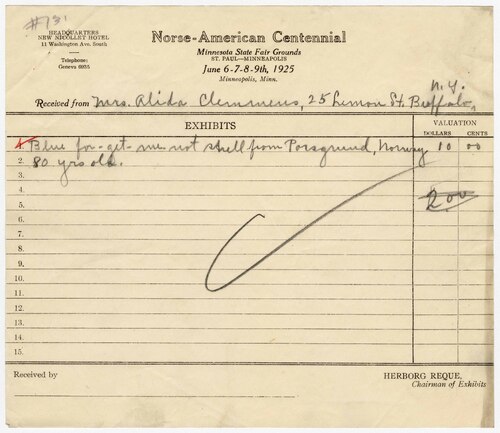 #731
HEADQUARTERS
NEW NICOLLET HOTEL
11 Washington Ave. South
Telephone:
Geneva 6035
Norse-American Centennial
Minnesota State Fair Grounds
ST. PAUL—MINNEAPOLIS
June 6-7-8-9th, 1925
Minneapolis, Minn.
N.Y.
Received from Mrs. Alida Clemmens, 25 Lemon St. Buffalo,
EXHIBITS VALUATION
DOLLARS CENTS
1. Blue for-get-me-not shell from Porsgrund, Norway 10 00
2. 80 yrs old.
3.
4.
5. 2.00
6.
7.
8.
9.
10.
11.
12.
13.
14.
15.
Received by HERBORG REQUE,
Chairman of Exhibits